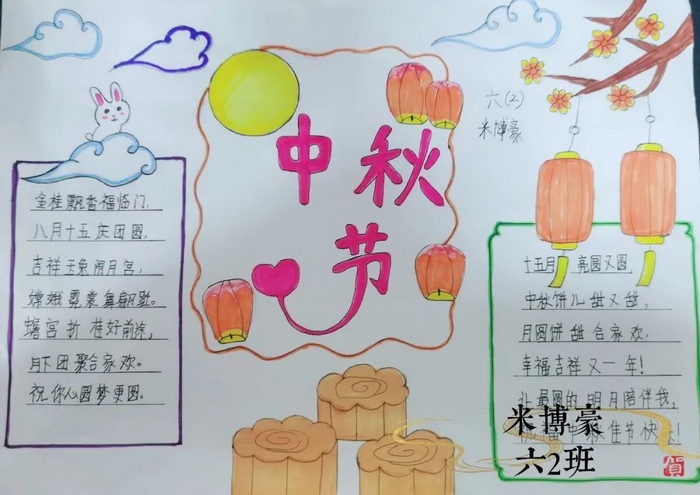 中秋节
六(2)
米博豪
金桂飘香福临门,
八月十五庆团圆.
吉祥玉兔闹月宫,
嫦娥霓裳舞翩跹。
蟾宫折桂好前途,
月下团聚合家欢。
祝你心圆梦更圆。
十五月亮圆又圆,
中秋饼儿甜又甜,
月圆饼甜合家欢.
幸福吉祥又一年!
让最圆的明月陪伴我,
中秋佳节快乐!
米博豪
六2班
賀